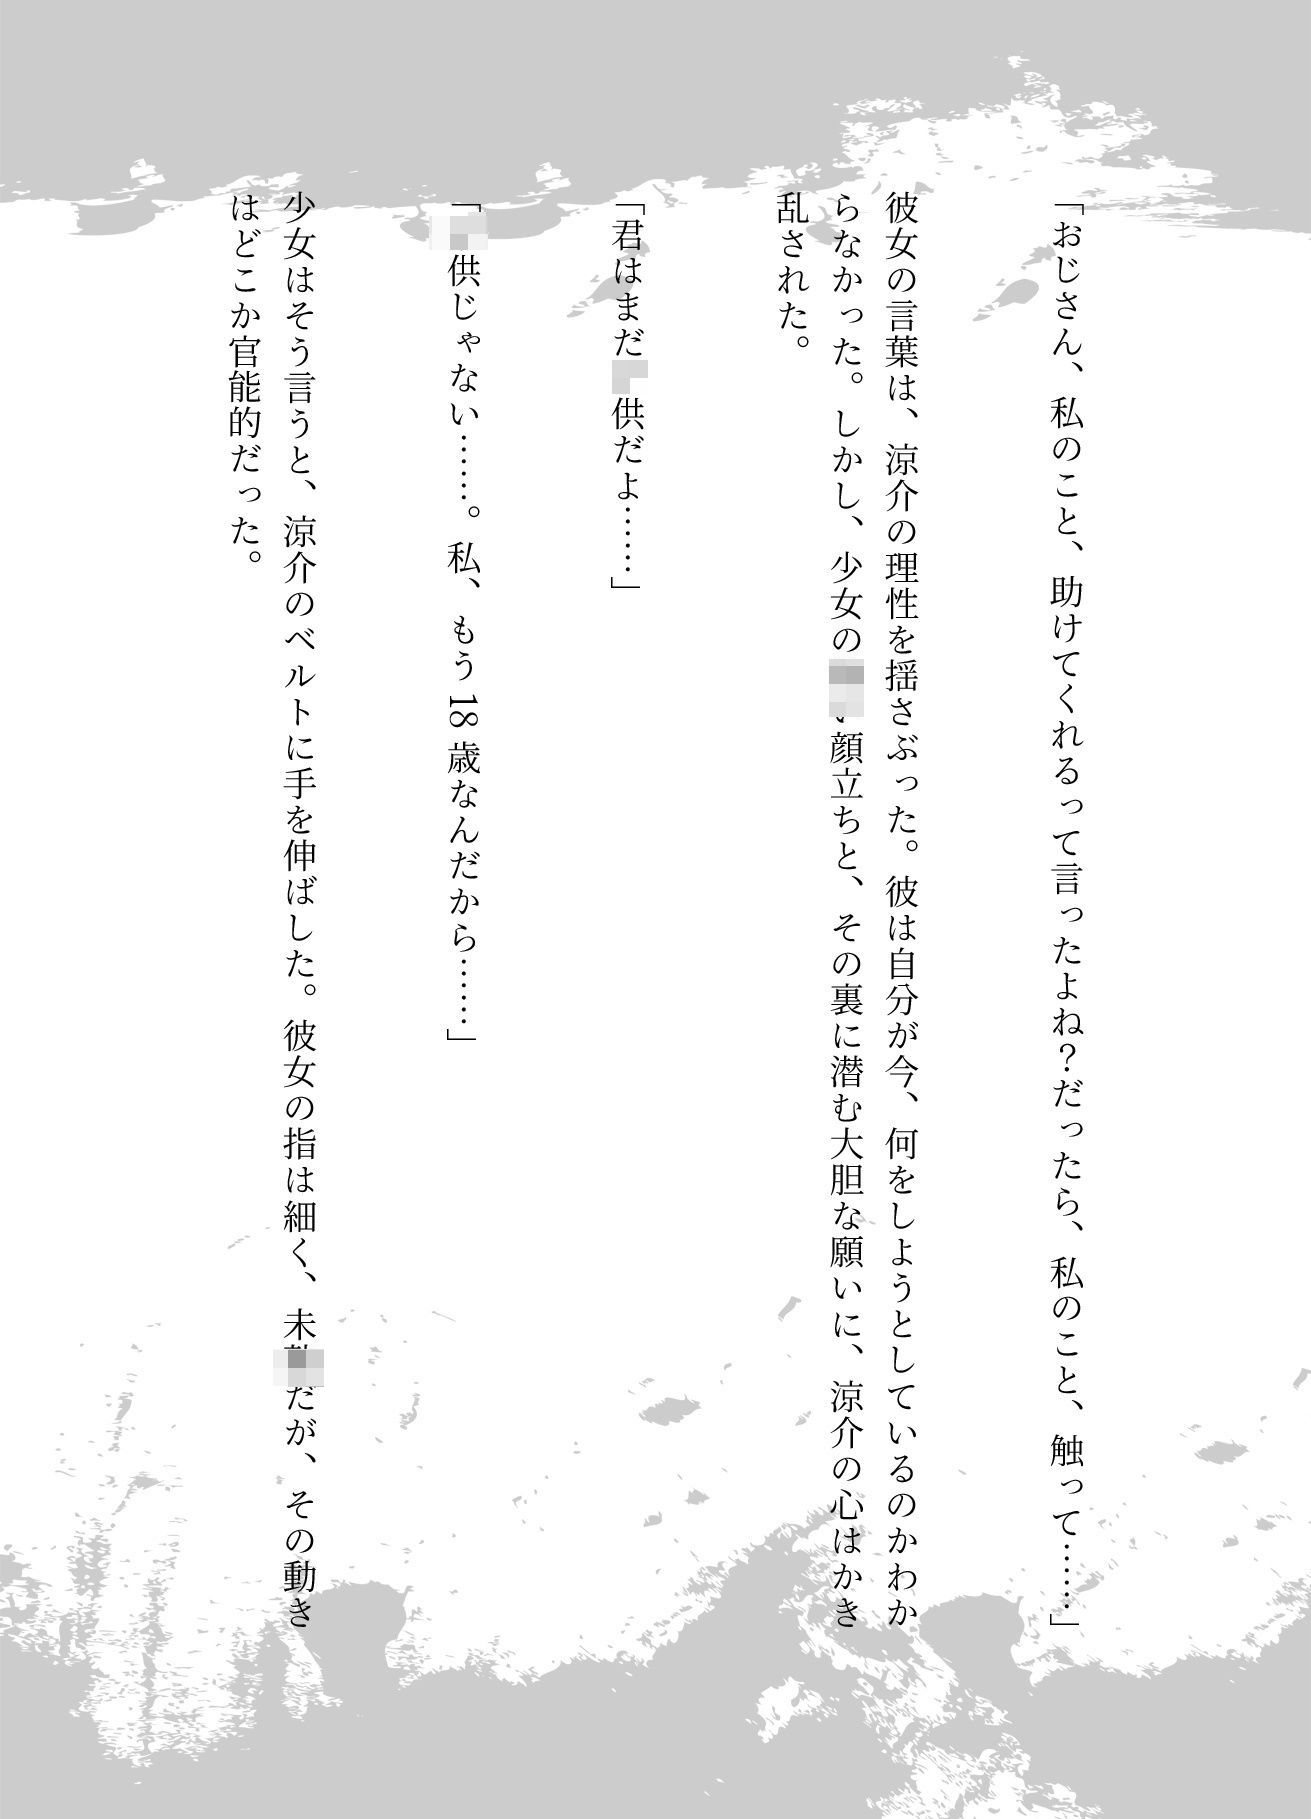 「おじさん、私のこと、助けてくれるって言ったよね？だったら、私のこと、触って……」
彼女の言葉は、涼介の理性を揺さぶった。彼は自分が今、何をしようとしているのかわか
らなかった。しかし、少女の顔立ちと、その裏に潜む大胆な願いに、涼介の心はかき
乱された。
「君はまだ供だよ……」
「供じゃない……。私、もう18歳なんだから……」
少女はそう言うと、涼介のベルトに手を伸ばした。彼女の指は細く、未だが、その動き
はどこか官能的だった。